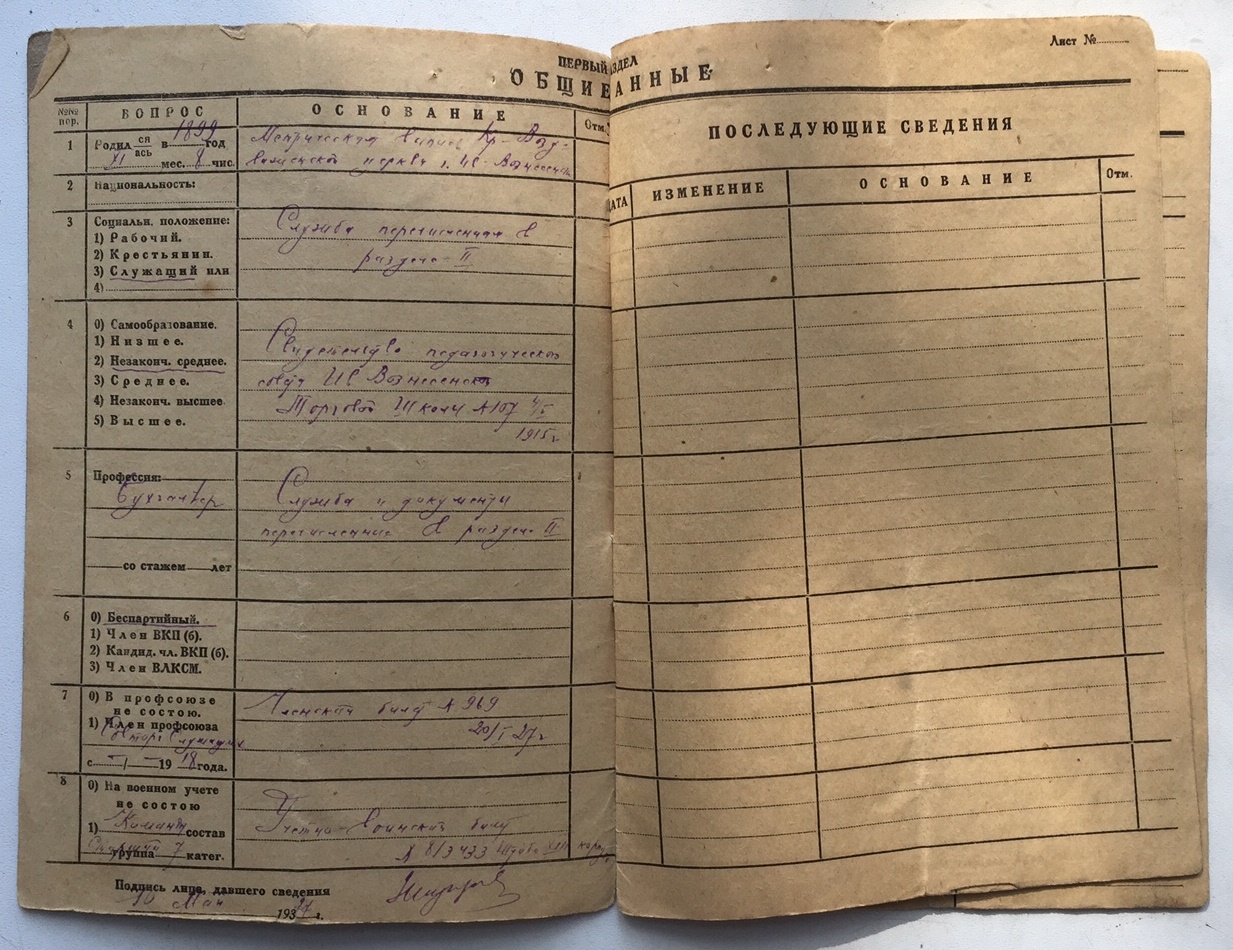 Лист №
ПЕРВЫЙ
ЗДЕЛ
ОБЩИЕ
АННЫЕ
№№
пор.
ВОПРОС
ОСНОВАНИЕ
Отм.
1
Родил ся
ась
в 1899 год
XI мес. 8 чис.
Метрическая выпись Кр-Воз-
движенской церкви г. Ив-Вознесенск
2
Национальность:
3
Социальн. положение:
1) Рабочий.
2) Крестьянин.
3) Служащий или
4)
Служба перечисленная в
разделе II
4
0) Самообразование.
1) Низшее.
2) Незаконч. среднее.
3) Среднее.
4) Незаконч. высшее
5) Высшее.
Свидетельство педагогического
Ив Вознесенской
Торговой Школы №107
1915г
5
Профессия:
Бухгалтер
со стажем лет
Служба и документы
перечисленные в разделе II
6
0) Беспартийный.
1) Член ВКП (б).
2) Кандид. чл. ВКП (б).
3) Член ВЛКСМ.
7
0) В профсоюзе
не состою.
1) Член профсоюза
с I 1918 года.
Членский билет № 969
20/I 27г
8
0) На военном учете
не состою
1) состав
группа 7 катег.
Учетно-Воинский билет
№ 813433
Подпись лица, давшего сведения
10 Мая 1937 г.
ПОСЛЕДУЮЩИЕ СВЕДЕНИЯ
ДАТА
ИЗМЕНЕНИЕ
ОСНОВАНИЕ
Отм.